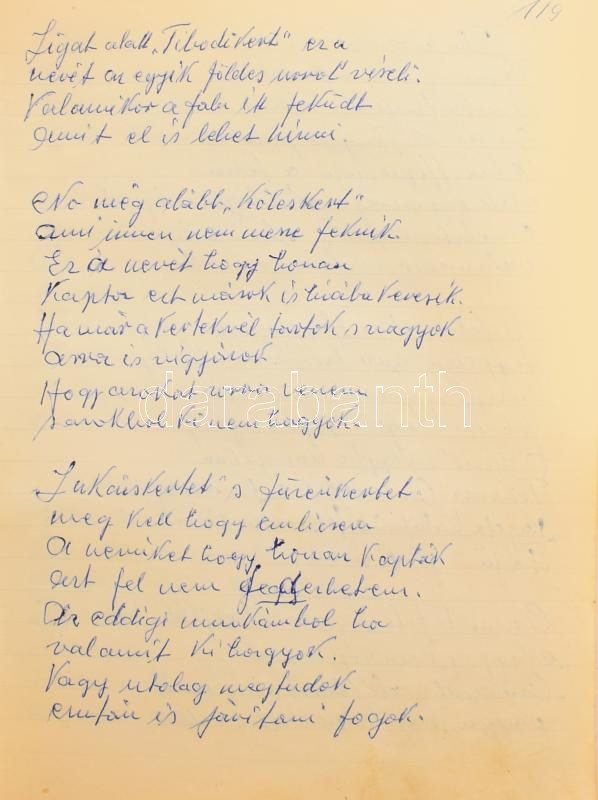 119
Ligat alatt „Tibodikert" ez a
nevét az egyik földes urról viseli.
Valamikor a falu itt feküdt
Amit el is lehet hinni.
No még alább „Köleskert"
ami innen nem messe fekszik.
Ez a nevét hogy honan
Kapta ezt mások is hiába keresik.
Ha már a kerteknél tartok s vagyok
arra is vigyázok
Hogy azokat sorra venem
s azokbol ki nem hagyok.
„Lukácskertet" s füzeskertet
meg kell hogy emlicsem
A nevüket hogy honan kapták
azt fel nem
Az eddigi munkámbol ha
valamit ki hagyok.
Vagy utolag megtudok
ezután is javitani fogok.
darabanth